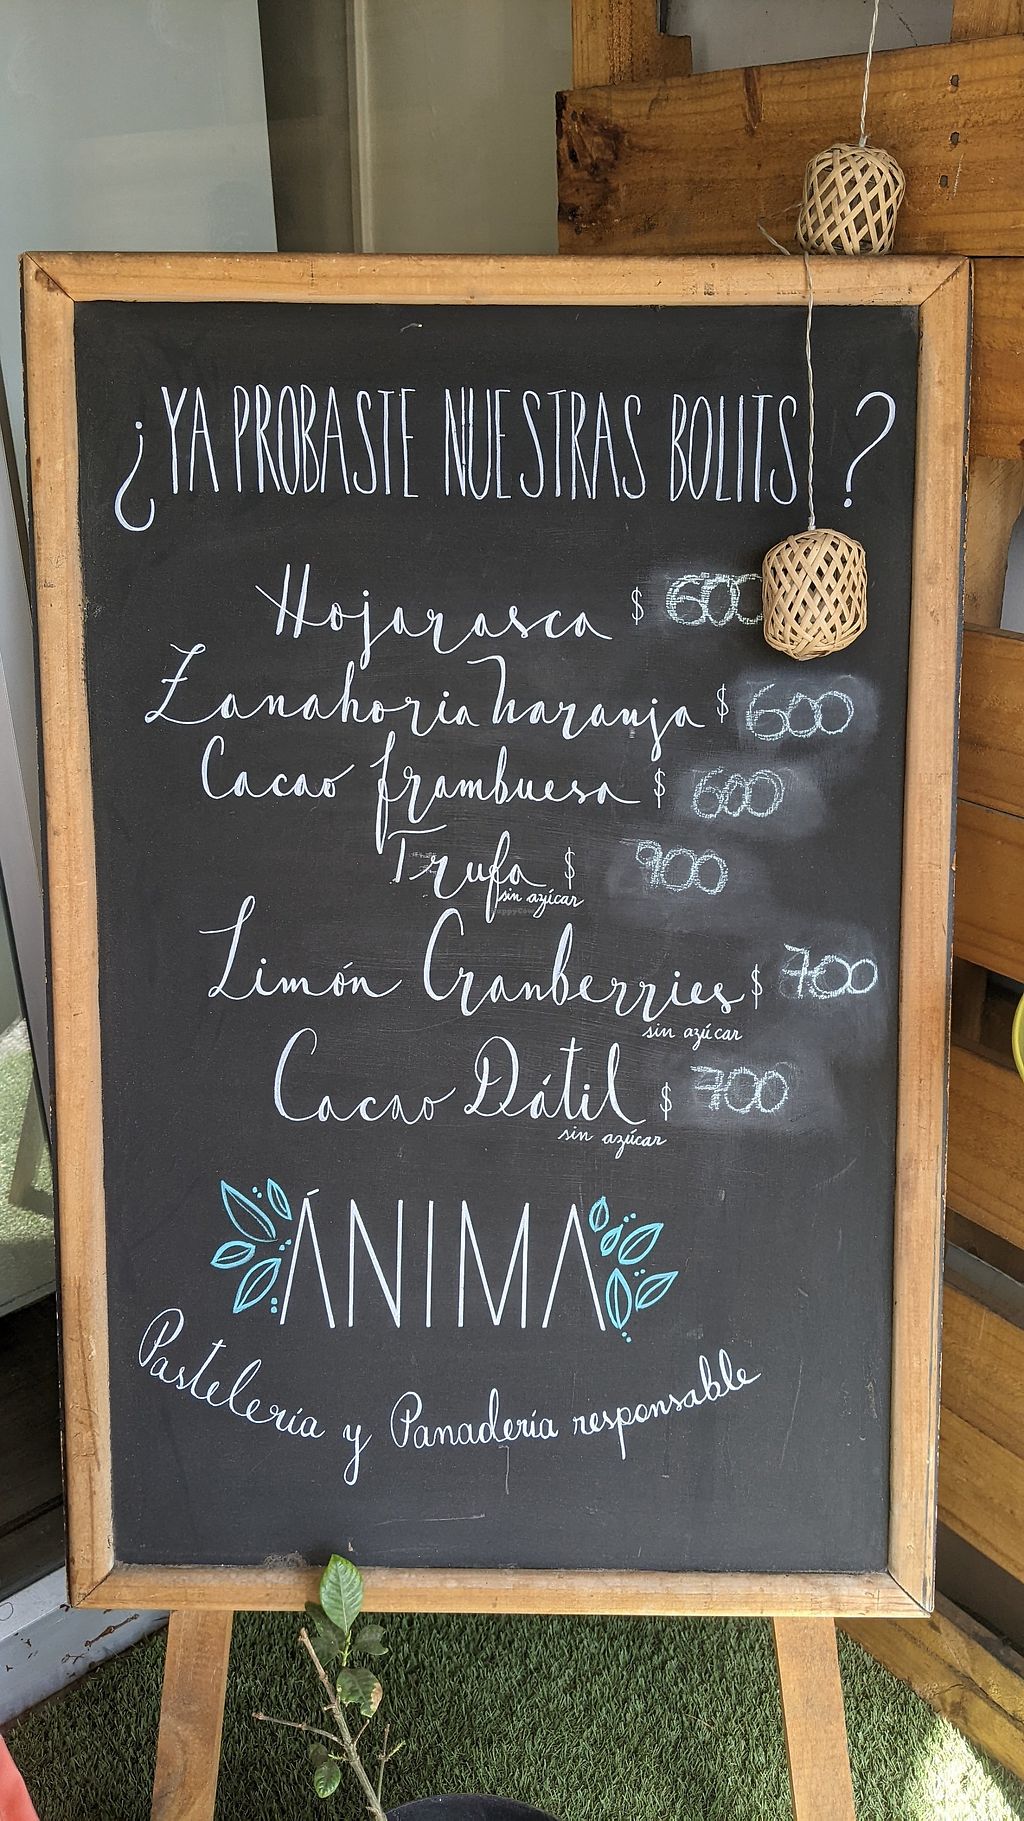 ¿YA PROBASTE NUESTRAS BOLITS ?
Hojarasca $ 600
Zanahoria Naranja $ 600
Cacao frambuesa $ 600
Trufa $ 900
sin azúcar
Limón Cranberries $ 700
sin azúcar
Cacao Dátil $ 700
sin azúcar
ÁNIMA
Pastelería y Panadería responsable